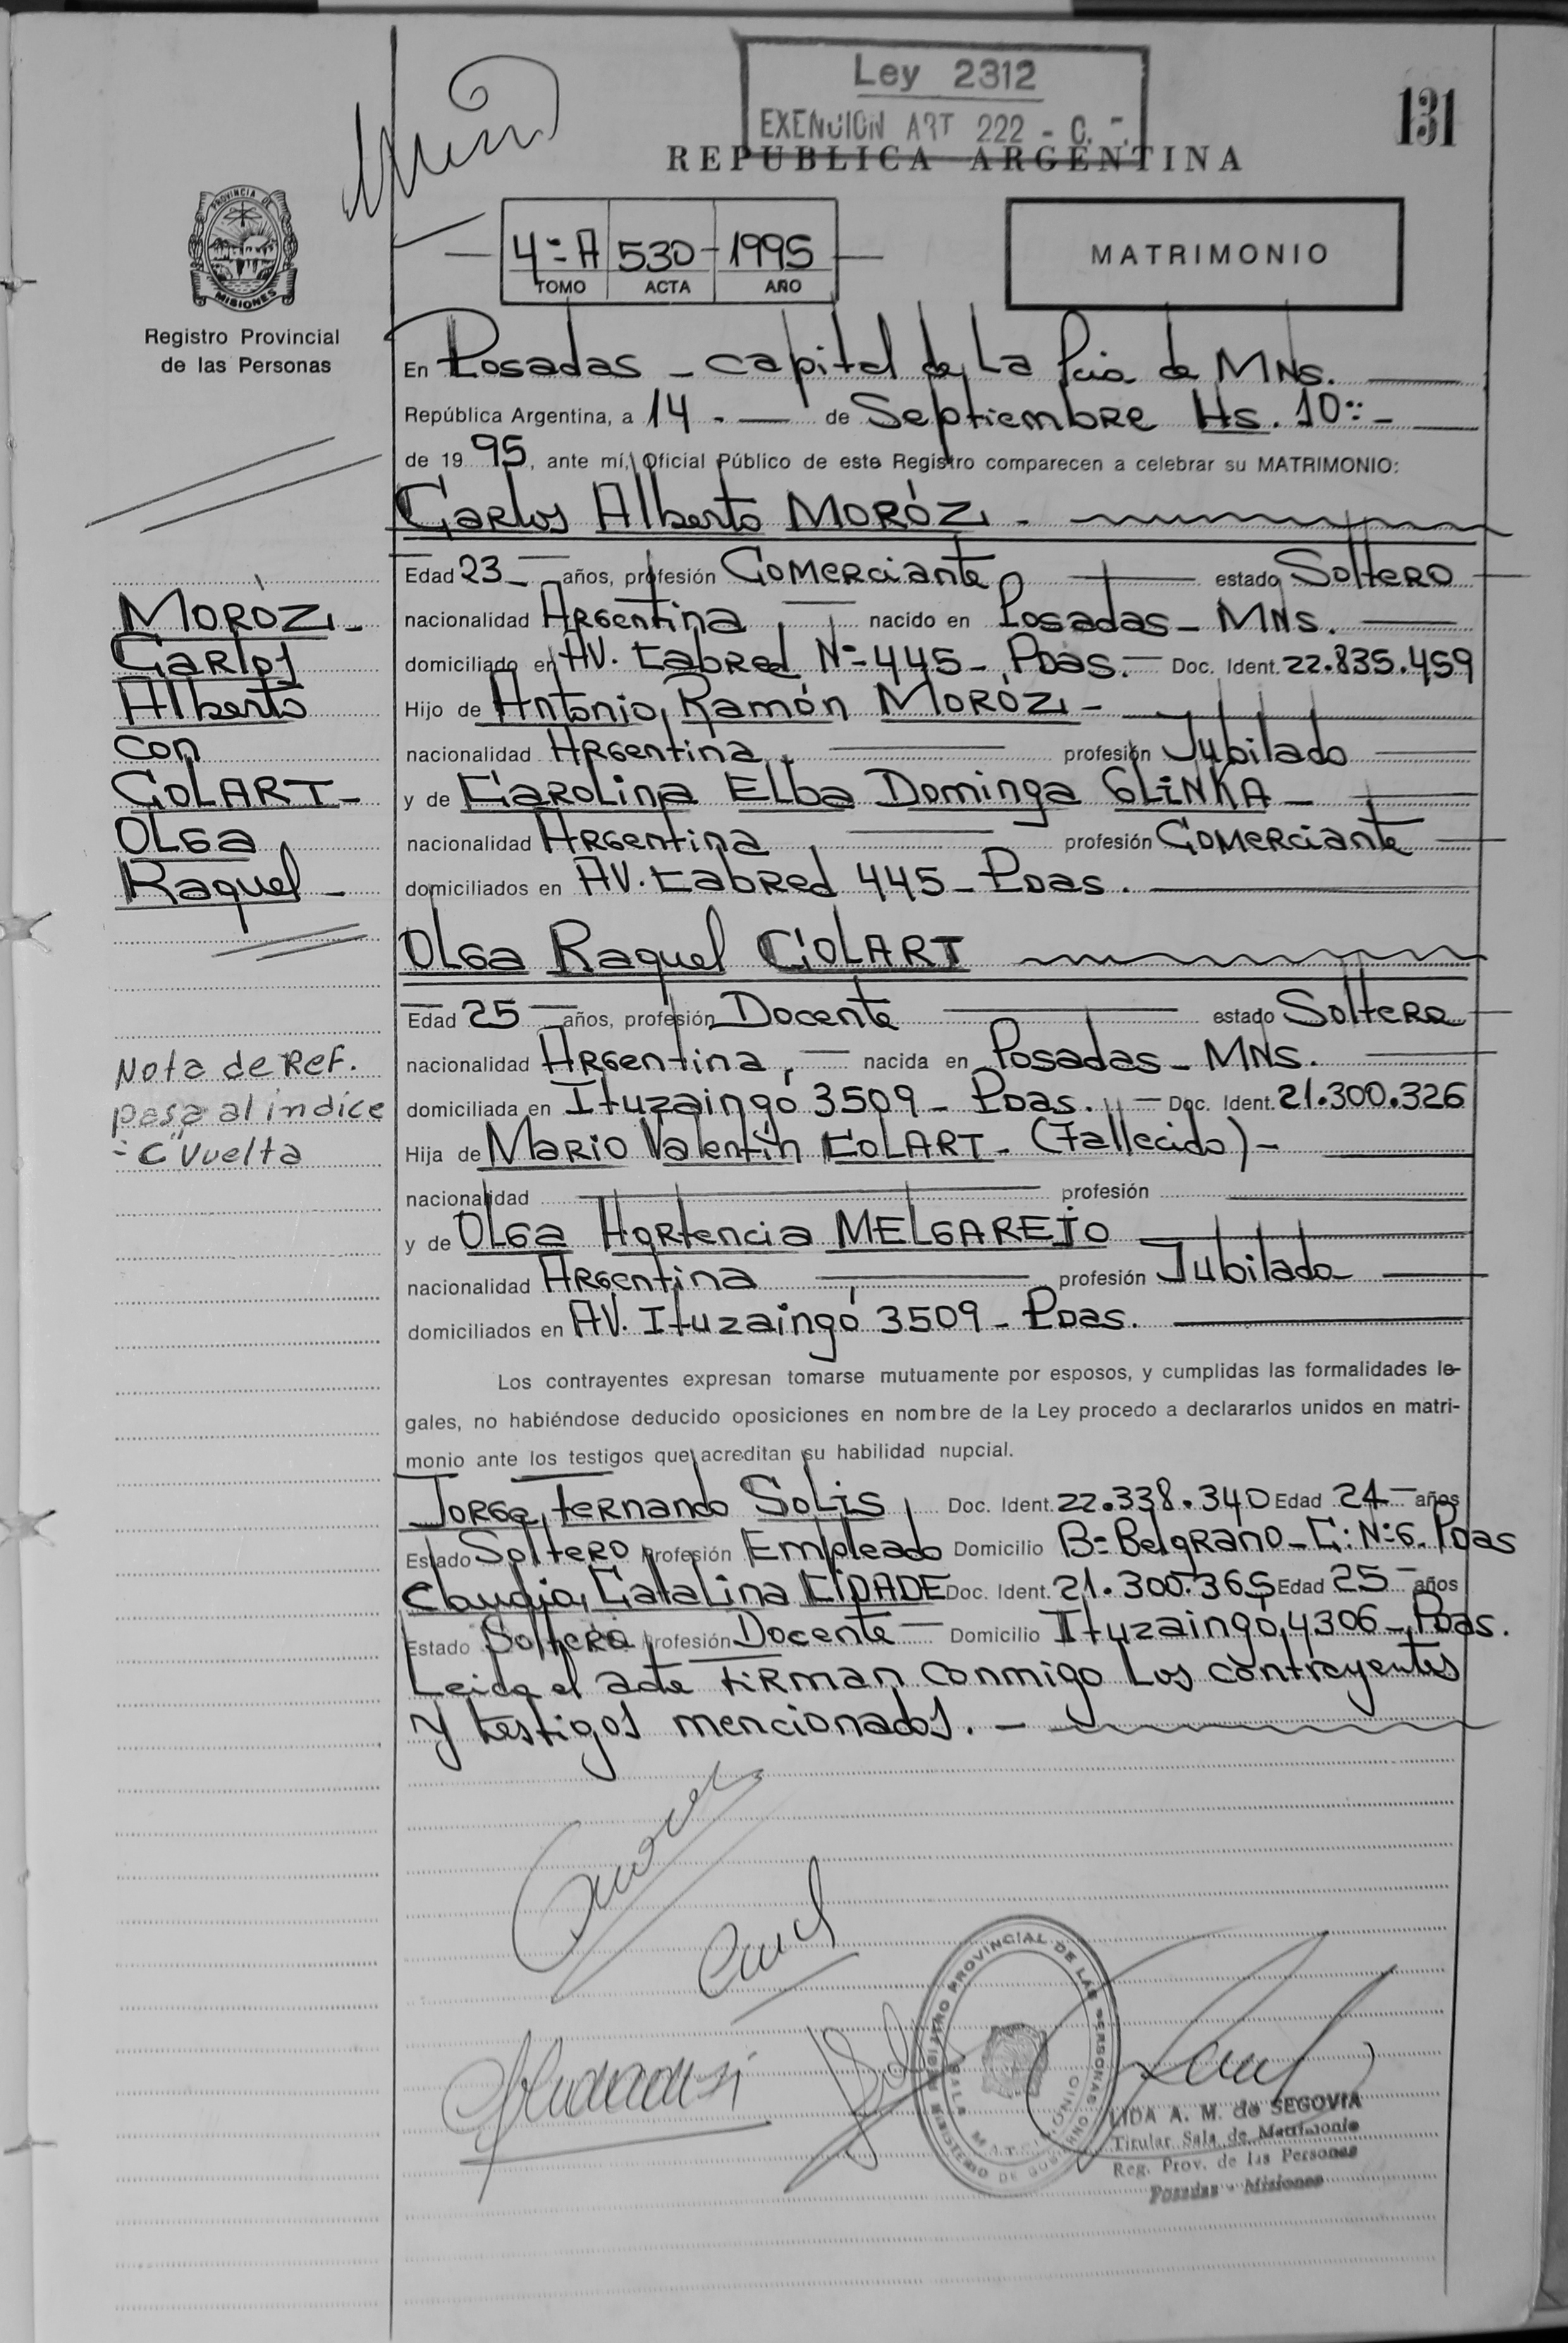 Ley 2312
EXENCION ART 222 - C.
131
REPUBLICA ARGENTINA
PROVINCIA DE
MISIONES
Registro Provincial
de las Personas
4º A 530 - 1995
TOMO ACTA AÑO
MATRIMONIO
En Posadas - capital de La Pcia de MNs.
República Argentina, a 14 - de Septiembre Hs. 10:-
de 1995, ante mí, Oficial Público de este Registro comparecen a celebrar su MATRIMONIO:
Carlos Alberto MORÓZI -
Edad 23 - años, profesión Comerciante estado Soltero
nacionalidad Argentina nacido en Posadas - MNS.
domiciliado en AV. Cabred Nº 445 - Pdas. - Doc. Ident. 22.835.459
Hijo de Antonio Ramón MORÓZI -
nacionalidad Argentina profesión Jubilado
y de Carolina Elba Dominga GLINKA -
nacionalidad Argentina profesión Comerciante
domiciliados en AV. Cabred 445 - Pdas.
MORÓZI -
Carlos
Alberto
con
COLART -
OLGA
Raquel -
OLGA Raquel COLART
Edad 25 años, profesión Docente estado Soltera
nacionalidad Argentina, nacida en Posadas - MNS.
domiciliada en Ituzaingó 3509 - Pdas. - Doc. Ident. 21.300.326
Hija de MARIO Valentín COLART - (Fallecido) -
nacionalidad profesión
y de OLGA Hortencia MELGAREJO
nacionalidad Argentina profesión Jubilada
domiciliados en AV. Ituzaingó 3509 - Pdas.
Nota de Ref.
pasa al indice
"C" Vuelta
Los contrayentes expresan tomarse mutuamente por esposos, y cumplidas las formalidades le-
gales, no habiéndose deducido oposiciones en nombre de la Ley procedo a declararlos unidos en matri-
monio ante los testigos que acreditan su habilidad nupcial.
Jorge Fernando SOLIS, Doc. Ident. 22.338.340 Edad 24 años
Estado Soltero Profesión Empleado Domicilio Bº Belgrano - C: Nº 6. Pdas
Claudia Catalina CIDADE Doc. Ident. 21.300.365 Edad 25 años
Estado Soltera profesión Docente Domicilio Ituzaingó 4306 - Pdas.
Leida el acta firman conmigo Los contrayentes
y testigos mencionados. -
REGISTRO PROVINCIAL DE LAS PERSONAS
SALA MATRIMONIO
MINISTERIO DE GOBIERNO
LIDA A. M. de SEGOVIA
Titular Sala de Matrimonio
Reg. Prov. de las Personas
Posadas - Misiones